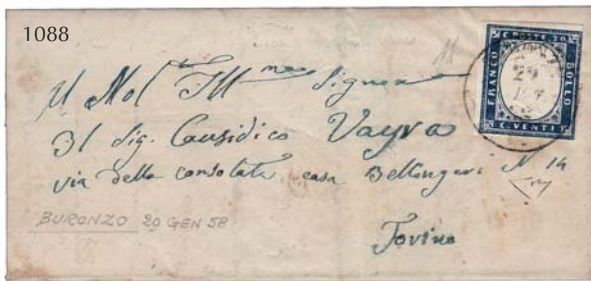 1088
C. POSTE 20
FRANCO
BOLLO
C. VENTI
Al Mol Ill mo Signor
Il Sig. Causidico Vayra
via della consolata casa Bellingeri N 14
Torino
BURONZO 29 GEN 58